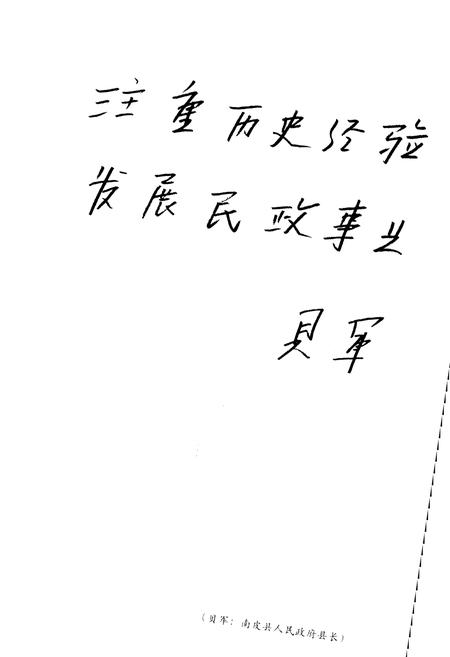 注重历史经验
发展民政事业
贝军
（贝军：南皮县人民政府县长）